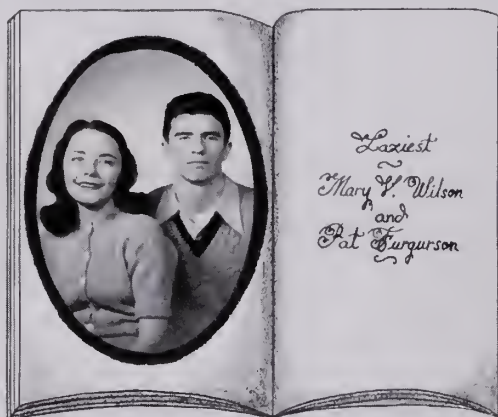 Laziest
~
Mary V. Wilson
and
Pat Furgurson